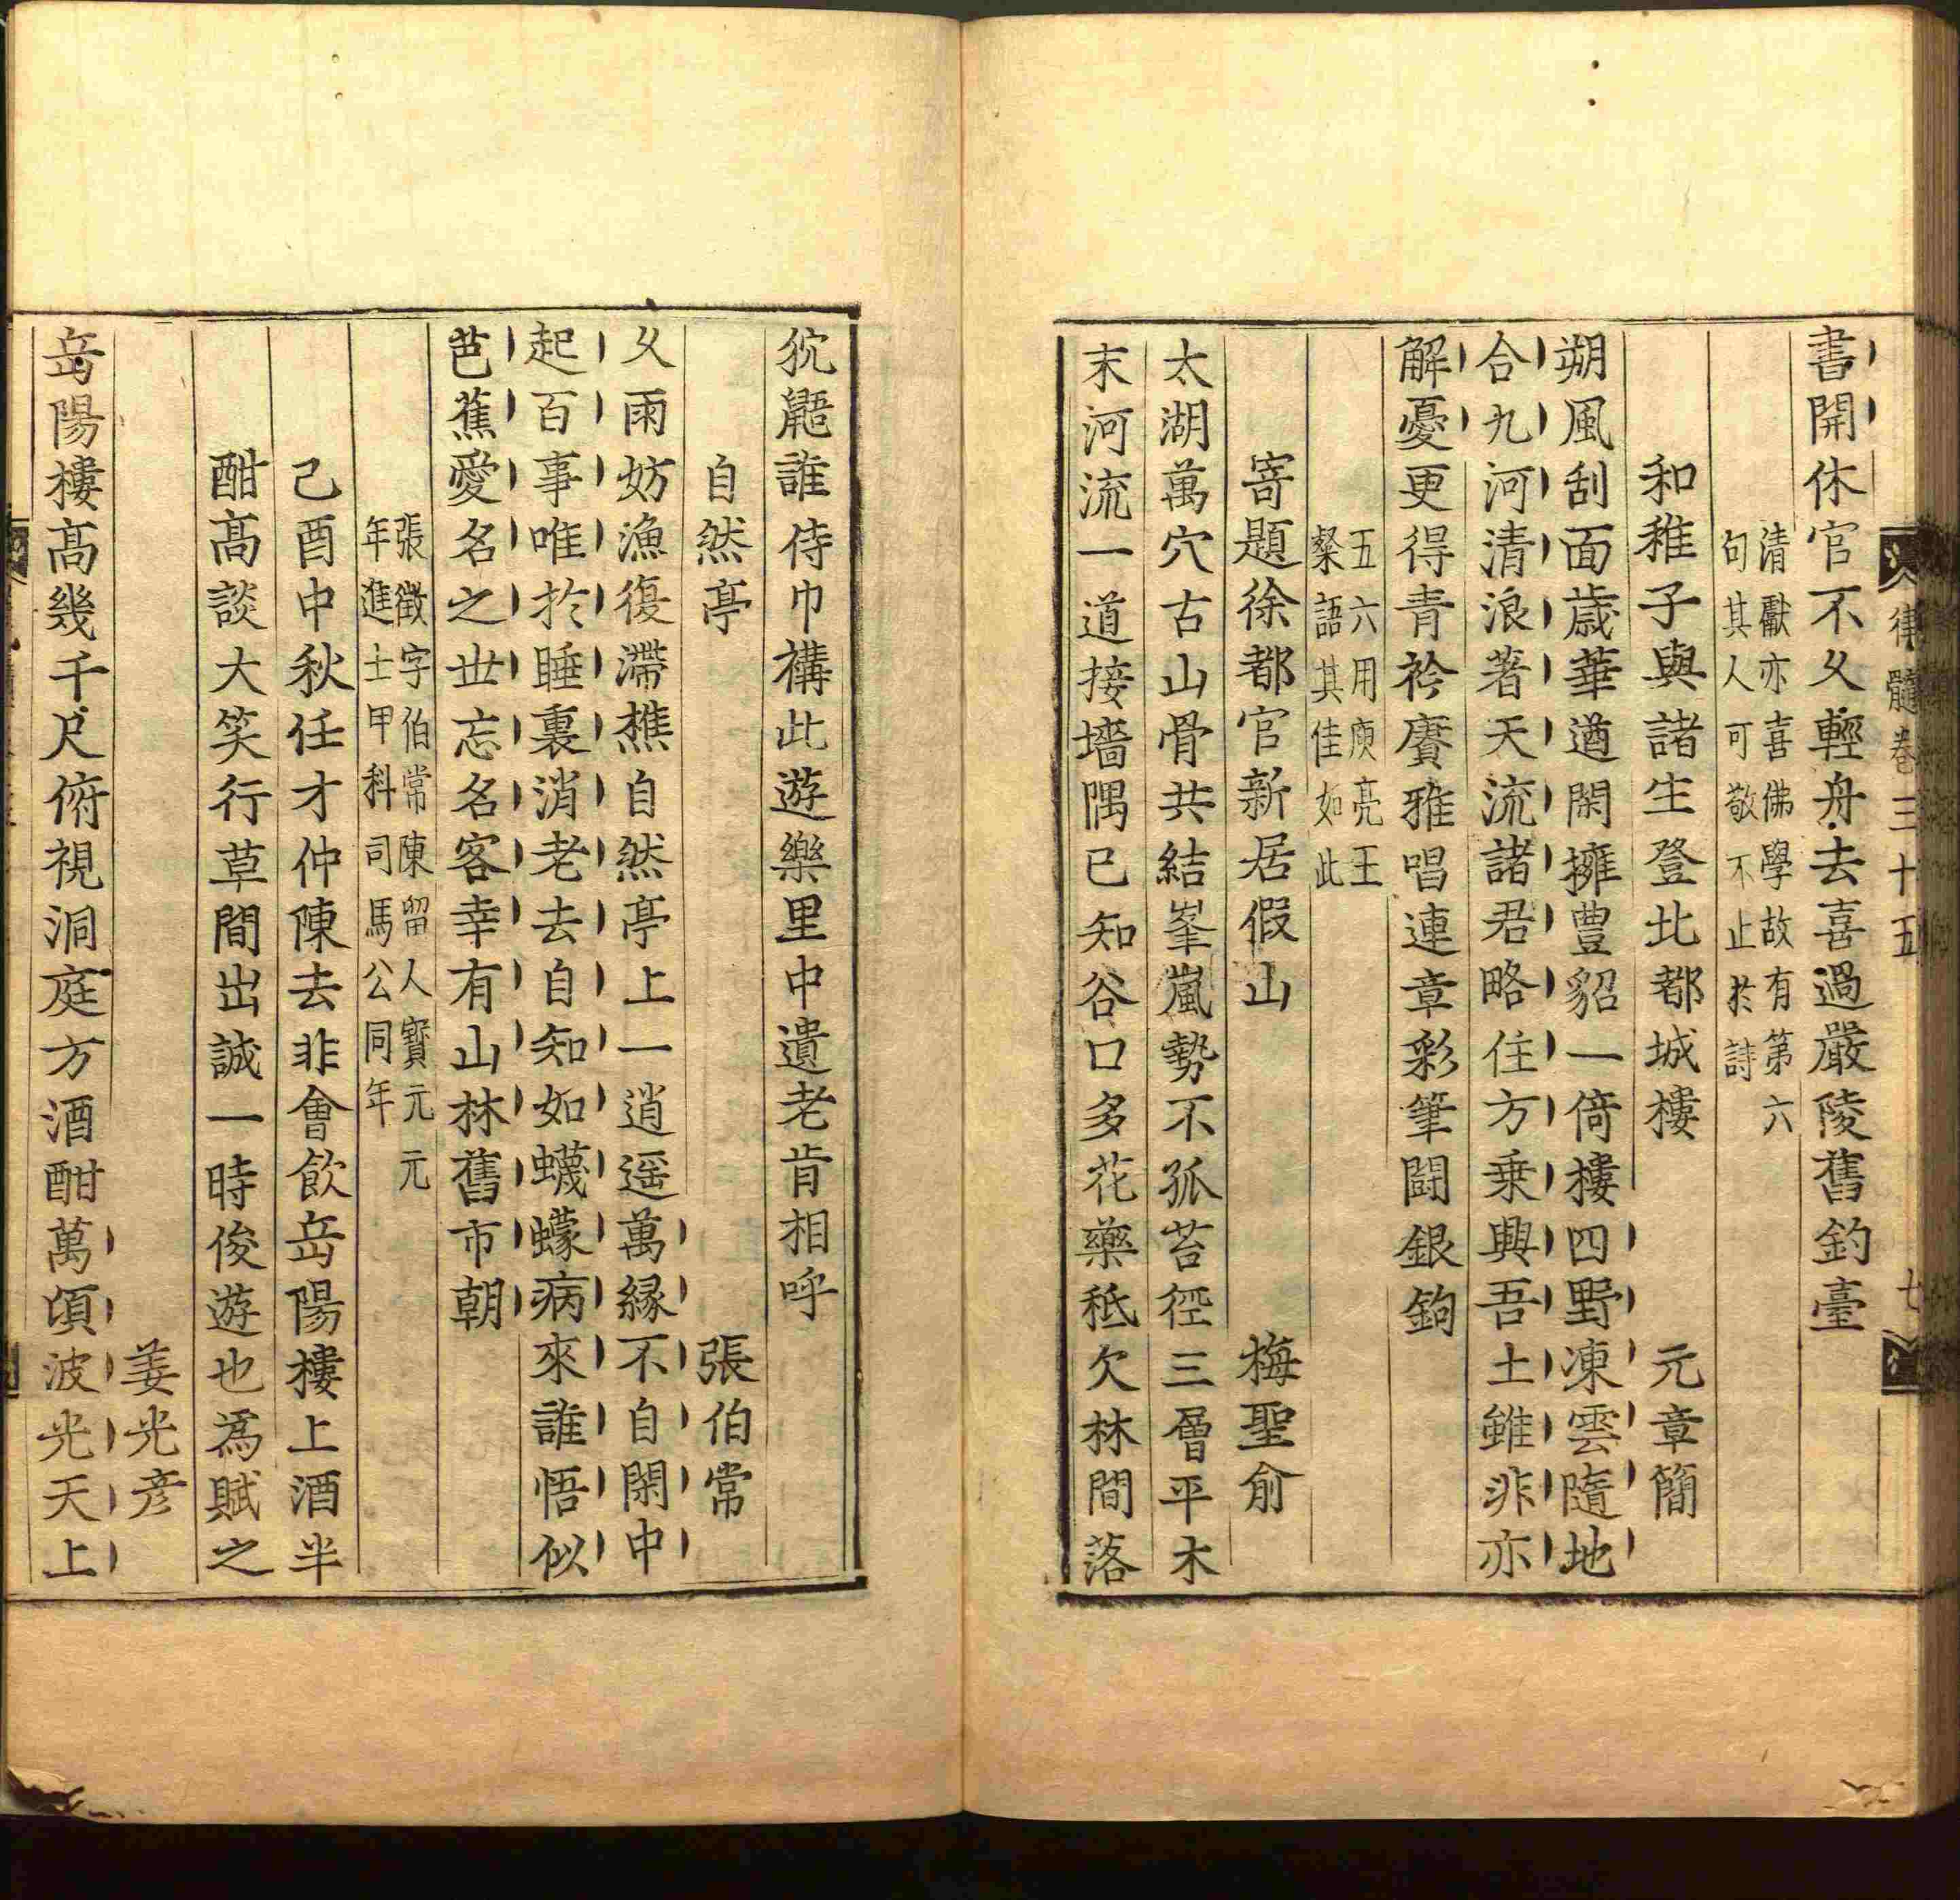 律髓卷三十五
七
書開休官不久輕舟去喜過嚴陵舊釣臺
清獻亦喜佛學故有第六
句其人可敬不止於詩
和稚子與諸生登北都城樓 元章簡
朔風刮面歲華遒閑擁豊貂一倚樓四野凍雲隨地
合九河清浪著天流諸君略住方乗興吾土雖非亦
解憂更得青衿賡雅唱連章彩筆鬪銀鉤
五六用庾亮王
粲語其佳如此
寄題徐都官新居假山 梅聖俞
太湖萬穴古山骨共結峯嵐勢不孤苔徑三層平木
末河流一道接墻隅已知谷口多花藥秪欠林間落
狖鼯誰侍巾褠此遊樂里中遺老肯相呼
自然亭 張伯常
久雨妨漁復滯樵自然亭上一逍遥萬縁不自閑中
起百事唯扵睡裏消老去自知如蠛蠓病來誰悟似
芭蕉愛名之世忘名客幸有山林舊市朝
張徵字伯常陳留人寳元元
年進士甲科司馬公同年
己酉中秋任才仲陳去非會飲岳陽樓上酒半
酣髙談大笑行草間出誠一時俊遊也為賦之
姜光彦
岳陽樓髙幾千尺俯視洞庭方酒酣萬頃波光天上